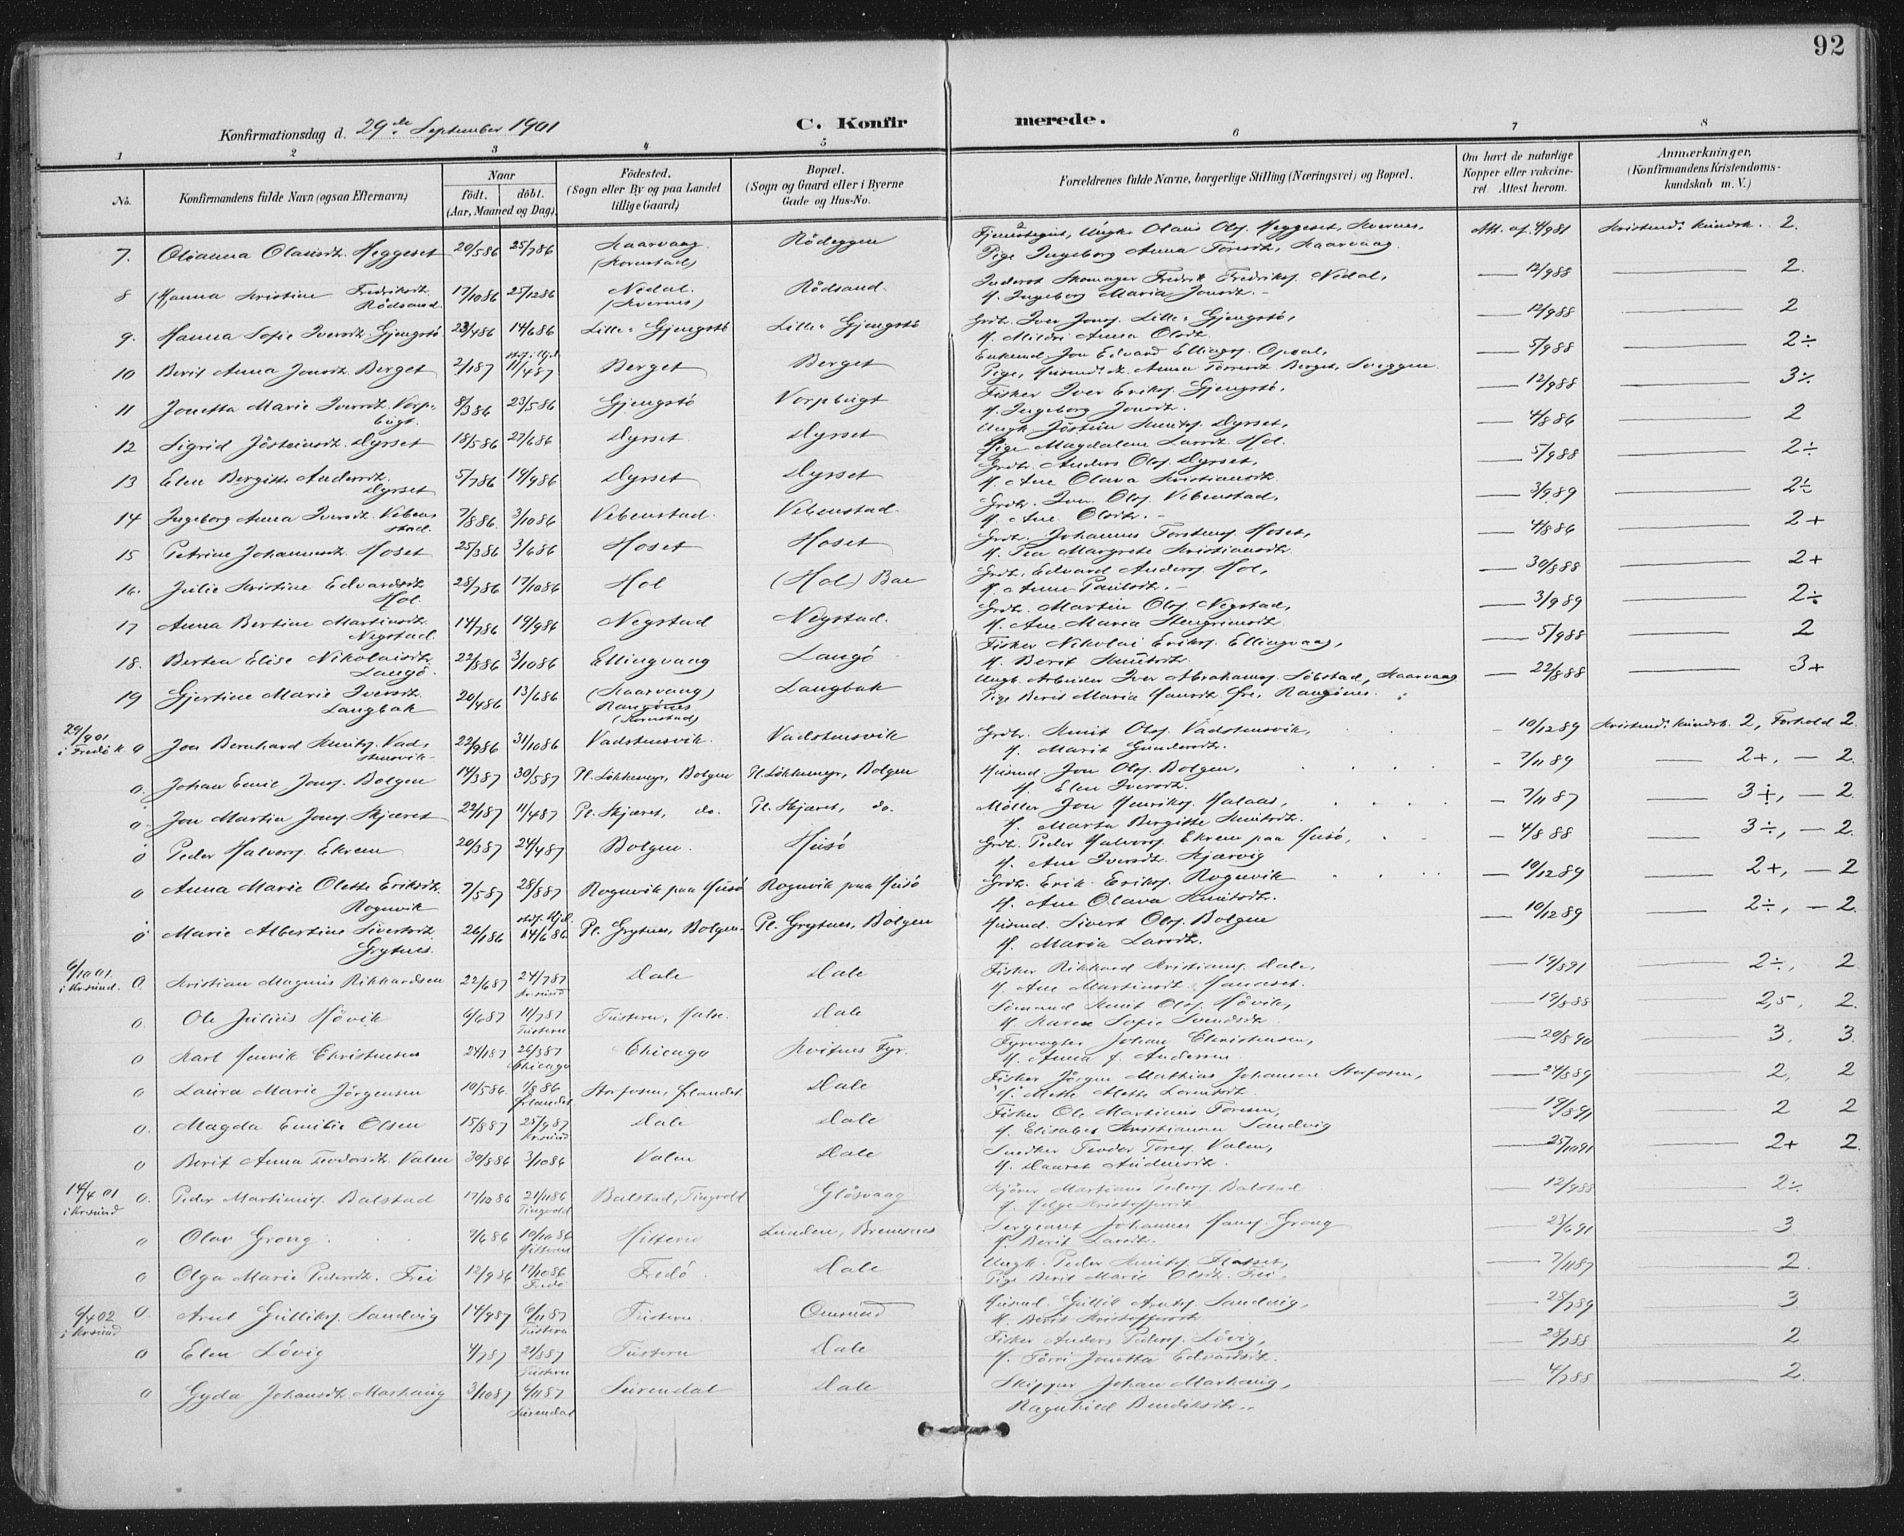 92
Konfirmationsdag d. 29de September 1901
C. Konfirmerede.
1 2 3 4 5 6 7 8
No. Konfirmandens fulde Navn (ogsaa Efternavn) Naar født. døbt. (Aar, Maaned og Dag). Fødested. (Sogn eller By og paa Landet tillige Gaard) Bopæl. (Sogn og Gaard eller i Byerne Gade og Hus-No. Forældrenes fulde Navne, borgerlige Stilling (Næringsvei) og Bopæl. Om havt de naturlige Kopper eller vaccineret. Attest herom. Anmærkninger, (Konfirmandens Kristendomskundskab m. V.)
7. Olianna Olausdt. Heggeset 20/5 86 25/7 86 Kaarvaag (Kornstad) Rødeggen Ungk. Olaus Ols. Heggeset, Kvernes, Pige Ingeborg Anna Toresdt. Kaarvaag Att. af 4/9 81 Kristend. kundsk. 2.
8 Hanna Kristine Fredriksdt. Rødsand 17/10 86 25/12 86 Nedal. (Kvernes) Rødsand. Inderst Skomager Fredrik Fredriks. Nedal, H. Ingeborg Maria Jonsdt. 12/9 88 2.
9. Hanna Sofie Iversdt. Gjengstø 23/4 86 14/6 86 Lille-Gjengstø Lille-Gjengstø Grdbr. Iver Jons. Lille-Gjengstø, H. Mildri Anna Olsdt. 12/9 88 2
10 Berit Anna Jonsdt. Berget 2/1 87 11/4 87 Berget Berget Enkemd. Jon Edvard Ellings. Opsal, Pige, Anna Toresdt. Berget, Sveggen 5/9 88 2÷
11 Jonetta Marie Iversdt. Vorpbugt. 8/3 86 23/5 86 Gjengstø Vorpbugt Fisker Iver Eriks. Gjengstø, H. Ingeborg Jonsdt. 12/9 88 3÷
12 Sigrid Jøsteinsdt. Dyrset 18/5 86 27/6 86 Dyrset Dyrset Ungk. Jøstein Knuts. Dyrset, Pige Magdalena Larsdt. Hol. 4/8 86 2
13 Elen Bergitte Andersdt. Dyrset 5/7 86 19/9 86 Dyrset Dyrset Grdbr. Anders Ols. Dyrset, H. Ane Olava Kristiansdt. 5/9 88 2÷
14 Ingeborg Anna Iversdt. Vebenstad. 7/8 86 3/10 86 Vebenstad. Vebenstad. Grdbr. Iver Ols. Vebenstad, H. Ane Olsdt. 3/9 89 2÷
15 Petrine Johannesdt. Hoset 25/3 86 3/6 86 Hoset Hoset Grdbr. Johannes Torstens. Hoset, H. Pea Margrete Kristiansdt. 4/8 86 2+
16. Julie Kristine Edvardsdt. Hol. 28/7 86 17/10 86 Hol (Hol) Bae Grdbr. Edvard Anders. Hol, H. Anne Paulsdt. 30/8 88 2+
17 Anna Bertine Martinsdt. Negstad. 14/7 86 19/9 86 Negstad Negstad. Grdbr. Martin Ols. Negstad, H. Ane Maria Stengrimsdt. 3/9 89 2÷
18. Bertea Elise Nikolaisdt. Langø. 22/8 86 3/10 86 Ellingvaag Langø Fisker Nikolai Eriks. Ellingvaag, H. Berit Knutsdt. 5/9 88 2
19 Gjertine Marie Iversdt. Langbak 20/4 86 13/6 86 (Kaarvaag) Rangønes (Kornstad) Langbak Ungk. Arbeider Iver Abrahams. Søbstad, Kaarvaag Pige Berit Maria Hansdt. Rangønes 22/8 88 3+
29/9 01 i Fredø k 0 Jon Bernhard Knuts. Vadstensvik 22/9 86 31/10 86 Vadstensvik. Vadstensvik Grdbr. Knut Ols. Vadstensvik, H. Marit Gundersdt. 10/12 89 Kristend. kundsk. 2, Forhold 2.
0. Johan Emil Jons. Bolgen 14/3 87 30/5 87 Pl. Løkkemyr, Bolgen Pl. Løkkemyr, Bolgen Husmd. Jon Ols. Bolgen, H. Elen Iversdt. 7/11 89 2+, — 2.
0. Jon Martin Jons. Skjæret 22/1 87 11/4 87 Pl. Skjæret, do. Pl. Skjæret, do. Møller Jon Henriks. Halaas, H. Marta Bergitte Knutsdt. 7/11 87 3÷, — 2.
0 Peder Halvors. Ekrem 20/3 87 24/4 87 Bolgen. Husø Grdbr. Peder Halvors. Ekrem paa Husø, H. Ane Iversdt. Kjærvig 4/8 88 3÷, — 2.
0 Anna Marie Olette Eriksdt. Rognvik 7/5 87 28/8 87 Rognvik paa Husø Rognvik paa Husø Grdbr. Erik Eriks. Rognvik H. Ane Olava Knutsdt. 10/12 89 2+, — 2
0 Marie Albertine Sivertsdt. Grytnes. 26/1 86 14/6 86. Pl. Grytnes, Bolgen. Pl. Grytnes, Bolgen Husmd. Sivert Ols. Bolgen H. Maria Larsdt. 10/12 89 2÷, — 2.
6/10 01 i Kr.sund. 0. Kristian Magnus Rikhardsen 22/6 87 24/7 87 Kr.sund Dale Dale Fisker Rikhard Kristians. Dale, H. Ane Martinsdt. 19/8 91 2÷, 2
0. Ole Julius Høvik 6/6 87 11/7 87 Tustern Tustern, Halse Dale Sømand Knut Ols. Høvik, H. Karen Sofie Svendsdt. 19/8 88 2,5, 2.
0 Karl Henrik Christensen 24/1 87 26/3 87 Chicago Chicago Kvitnes Fyr. Fyrvogter Johan Christensen, H. Anna f. Andersen 20/8 90 3. 3.
0 Laura Marie Jørgensen 10/5 86 1/8 86 Ørlandet Storfosen, Ørlandet Dale Fisker Jørgen Mathias Johansen Storfosen, H. Mette Mette Lornsdt. 24/8 89 2, 2
0. Magda Emilie Olsen 15/8 87 25/9 87 Kr.sund Dale Dale Fisker Ole Martinus Toresen, H. Elisabet Kristianna Sandvig 19/8 91 2 2
0 Berit Anna Teodorsdt. Valen 30/8 86 3/10 86 Valen Dale Snedker Teodor Tores. Valen, H. Lauret Andersdt. 25/10 91 2+ 2.
14/4 01 i Kr.sund 0. Peder Martinius. Balstad 17/10 86 21/11 86 Tingvold Balstad, Tingvold Gløsvaag Kjører Martinus Peders. Balstad H. Helge Kristoffersdt. 12/9 88 2÷
0 Olav Grong. 7/6 86 10/10 86 Hittern Hittern Lunden, Bremsnes Sergeant Johannes Hans. Grong H. Berit Larsdt. 23/6 91 3
0 Olga Marie Pedersdt. Frei 12/9 86 17/10 86 Fredø Fredø. Dale Ungk. Peder Knuts. Flatset, Pige Berit Marie Olsdt. Frei, 7/11 87 2.
6/4 02 i Kr.sund 0. Arnt Gullíks. Sandvig 14/9 87 6/11 87 Tustern Tustern. Omsund Husmd. Gullik Arnts. Sandvig, H. Berit Kristoffersdt. 28/7 89 3
0 Elen Løvig 4/7 87 21/8 87 Tustern Tustern Dale Fisker Anders Peders. Løvig, H. Tørri Jonetta Edvardsdt. 28/7 88 2
0 Gyda Johansdt. Marhaug 3/10 87 6/11 87 Surendal Surendal Dale Skipper Johan Marhaug, Ragnhild Bendiksdt. 4/7 88 2.